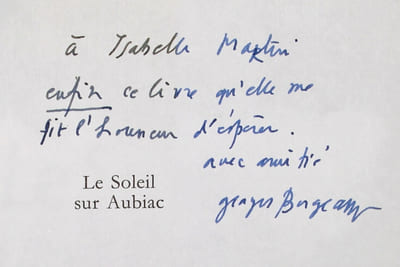 à Isabelle Martini
enfin ce livre qu'elle me
fit l'honneur d'espérer.
avec amitié
Le Soleil
sur Aubiac
georges Borgeaud